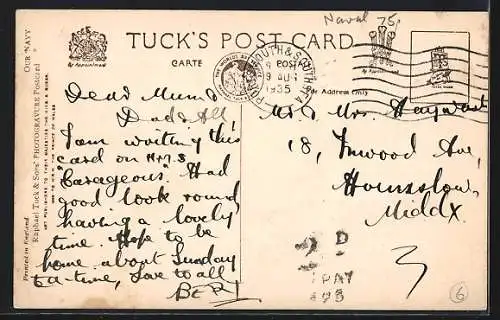 Naval 75
TUCK'S POST CARD
CARTE POSTALE
By Appointment
By Appointment
For Address Only
PORTSMOUTH & SOUTHSEA
9 AUG
1935
Printed in England
Raphael Tuck & Sons' PHOTOGRAVURE Postcard OUR NAVY
ART PUBLISHERS TO THEIR MAJESTIES THE KING & QUEEN
AND TO H.R.H. THE PRINCE OF WALES
Dear Mum &
Dad & All
I am writing this
card on H.M.S
"Corageous". Had
good look round
having a lovely
time. Hope to be
home about Sunday
tea-time, Love to all,
BER
Mr & Mrs. Hayward
18, Inwood Ave,
Hounslow,
Middx
D
PAY
3
6